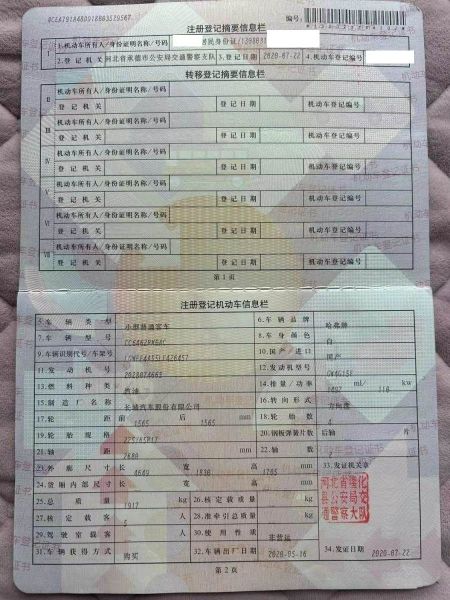 注册登记摘要信息栏
编号:
1.机动车所有人/身份证明名称/号码
居民身份证/
2.登记机关 河北省承德市公安局交通警察支队 3.登记日期 2020-07-22 4.机动车登记编号
转移登记摘要信息栏
II 机动车所有人/身份证明名称/号码
登记机关 登记日期 机动车登记编号
III 机动车所有人/身份证明名称/号码
登记机关 登记日期 机动车登记编号
IV 机动车所有人/身份证明名称/号码
登记机关 登记日期 机动车登记编号
V 机动车所有人/身份证明名称/号码
登记机关 登记日期 机动车登记编号
VI 机动车所有人/身份证明名称/号码
登记机关 登记日期 机动车登记编号
VII 机动车所有人/身份证明名称/号码
登记机关 登记日期 机动车登记编号
第1页
注册登记机动车信息栏
5.车辆类型 小型普通客车 6.车辆品牌 哈弗牌
7.车辆型号 8.车身颜色 白
9.车辆识别代号/车架号 10.国产/进口 国产
11.发动机号 12.发动机型号 GW4G15F
13.燃料种类 汽油 14.排量/功率 1497 ml/ kw
15.制造厂名称 长城汽车股份有限公司 16.转向形式 方向盘
17.轮距 前 1565 后 1565 mm 18.轮胎数
19.轮胎规格 225/65R17 20.钢板弹簧片数 后轴 片
21.轴距 2680 mm 22.轴数 2
23.外廓尺寸 长 4649 宽 1830 高 1705 mm 33.发证机关章
24.货厢内部尺寸 长 宽 高 mm
河北省隆化县公安局交通警察大队
25.总质量 1917 kg 26.核定载质量 kg
27.核定载客 5 人 28.准牵引总质量 kg
29.驾驶室载客 人 30.使用性质 非营运
31.车辆获得方式 购买 32.车辆出厂日期 2020-05-16 34.发证日期 2020-07-22
第2页